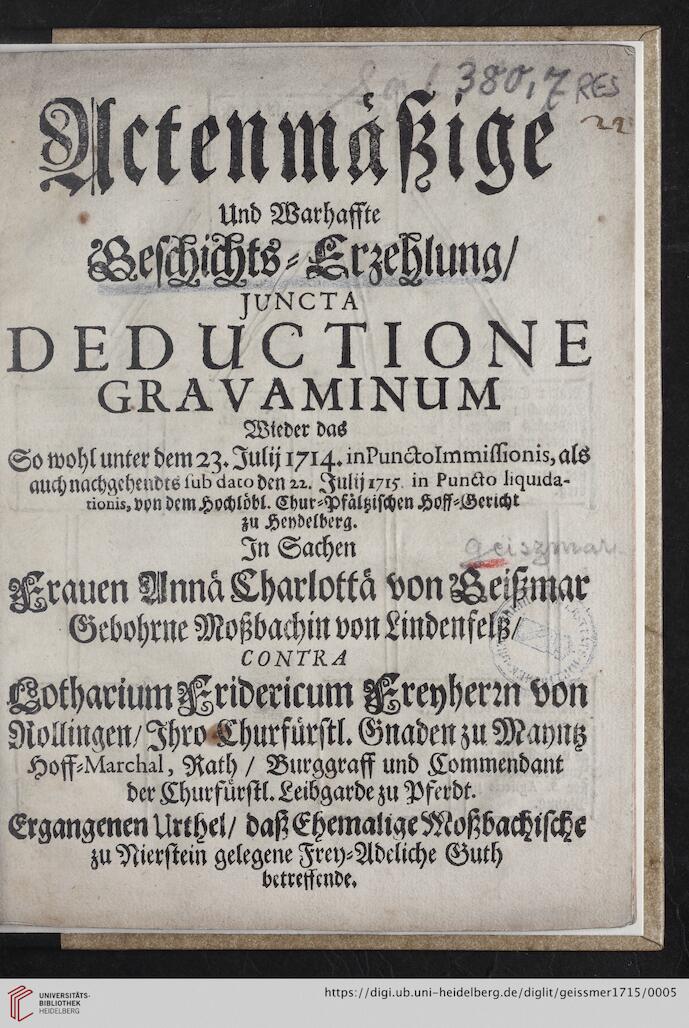 380,7 RES
22
Actenmäßige
Und Warhaffte
Geschichts-Erzehlung/
JUNCTA
DEDUCTIONE
GRAVAMINUM
Wieder das
So wohl unter dem 23. Julij 1714. in Puncto Immissionis, als
auch nachgehendts sub dato den 22. Julij 1715. in Puncto liquida-
tionis, von dem Hochlöbl. Chur-Pfältzischen Hoff-Gericht
zu Heydelberg.
In Sachen
geiszmar
Frauen Annä Charlottä von Geißmar
Gebohrne Moßbachin von Lindenfelß/
CONTRA
Lotharium Fridericum Freyherrn von
Rollingen/ Ihro Churfürstl. Gnaden zu Mayntz
Hoff-Marchal, Rath / Burggraff und Commendant
der Churfürstl. Leibgarde zu Pferdt.
Ergangenen Urthel/ daß Ehemalige Moßbachische
zu Nierstein gelegene Frey-Adeliche Guth
betreffende.
UNIVERSITÄTS-
BIBLIOTHEK
HEIDELBERG
https://digi.ub.uni-heidelberg.de/diglit/geissmer1715/0005